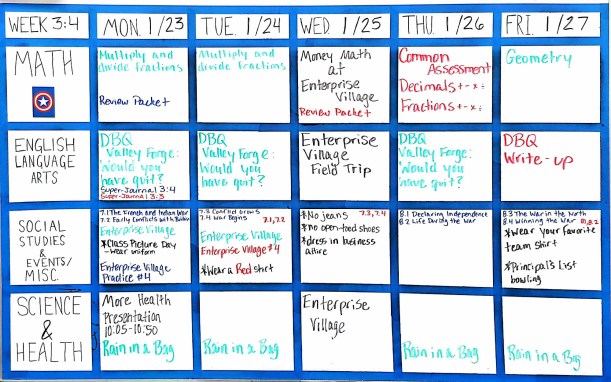 WEEK 3:4
MON. 1/23
TUE. 1/24
WED. 1/25
THU. 1/26
FRI. 1/27
MATH
Multiply and
divide fractions
Review Packet
Multiply and
divide fractions
Money Math
at
Enterprise
Village
Review Packet
Common
Assessment
Decimals + - x ÷
Fractions + - x ÷
Geometry
ENGLISH
LANGUAGE
ARTS
DBQ
Valley Forge:
Would you
have quit?
Super-Journal 3:4
Super-Journal 3:3
DBQ
Valley Forge:
Would you
have quit?
Enterprise
Village
Field Trip
DBQ
Valley Forge:
Would you
have quit?
DBQ
Write-up
SOCIAL
STUDIES
& EVENTS/
MISC.
7.1 The French and Indian War
7.2 Early Conflicts with
Enterprise Village
*Class Picture Day
-Wear uniform
Enterprise Village
Practice #4
7.3 Conflict Grows
7.4 War Begins
7.1, 7.2
Enterprise Village
Enterprise Village #4
*Wear a Red shirt
*No jeans
7.3, 7.4
*no open-toed shoes
*dress in business
attire
8.1 Declaring Independence
8.2 Life During the War
8.3 The War in the North
8.4 Winning the War
*Wear your favorite
team shirt
*Principal's List
bowling
SCIENCE
&
HEALTH
More Health
Presentation
10:05-10:50
Rain in a Bag
Rain in a Bag
Enterprise
Village
Rain in a Bag
Rain in a Bag